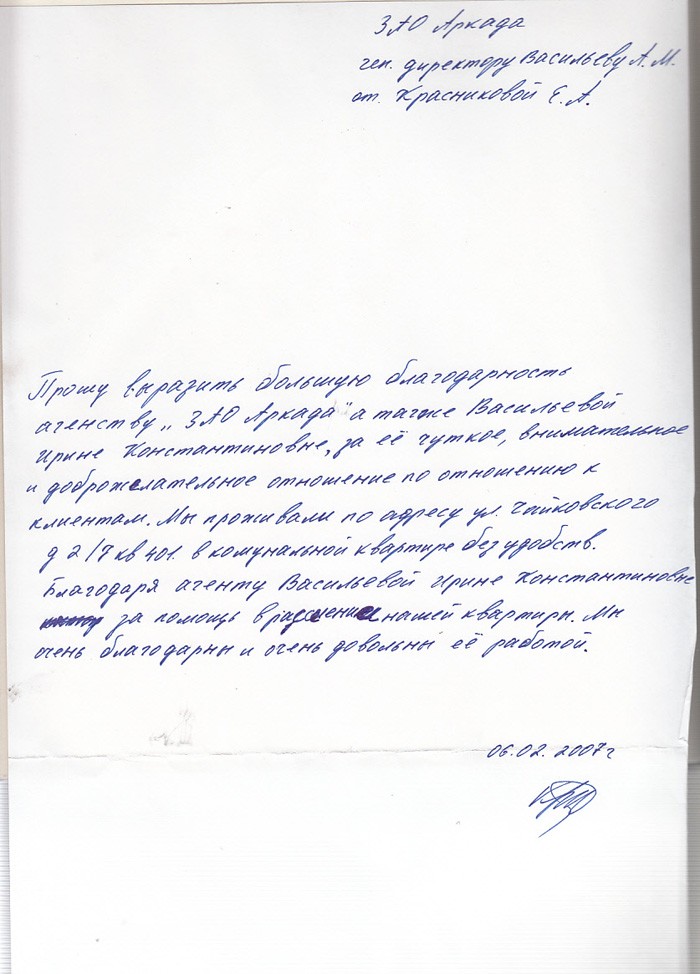 ЗАО Аркада
ген. директору Васильеву А.М.
от. Красниковой Е.А.
Прошу выразить большую благодарность
агенству „ЗАО Аркада" а также Васильевой
Ирине Константиновне, за её чуткое, внимательное
и доброжелательное отношение по отношению к
клиентам. Мы проживали по адресу ул. Чайковского
д 2/7 кв 401. в комунальной квартире без удобств.
Благодаря агенту Васильевой Ирине Константиновне
за помощь в расселение нашей квартиры. Мы
очень благодарны и очень довольны её работой.
06.02.2007г